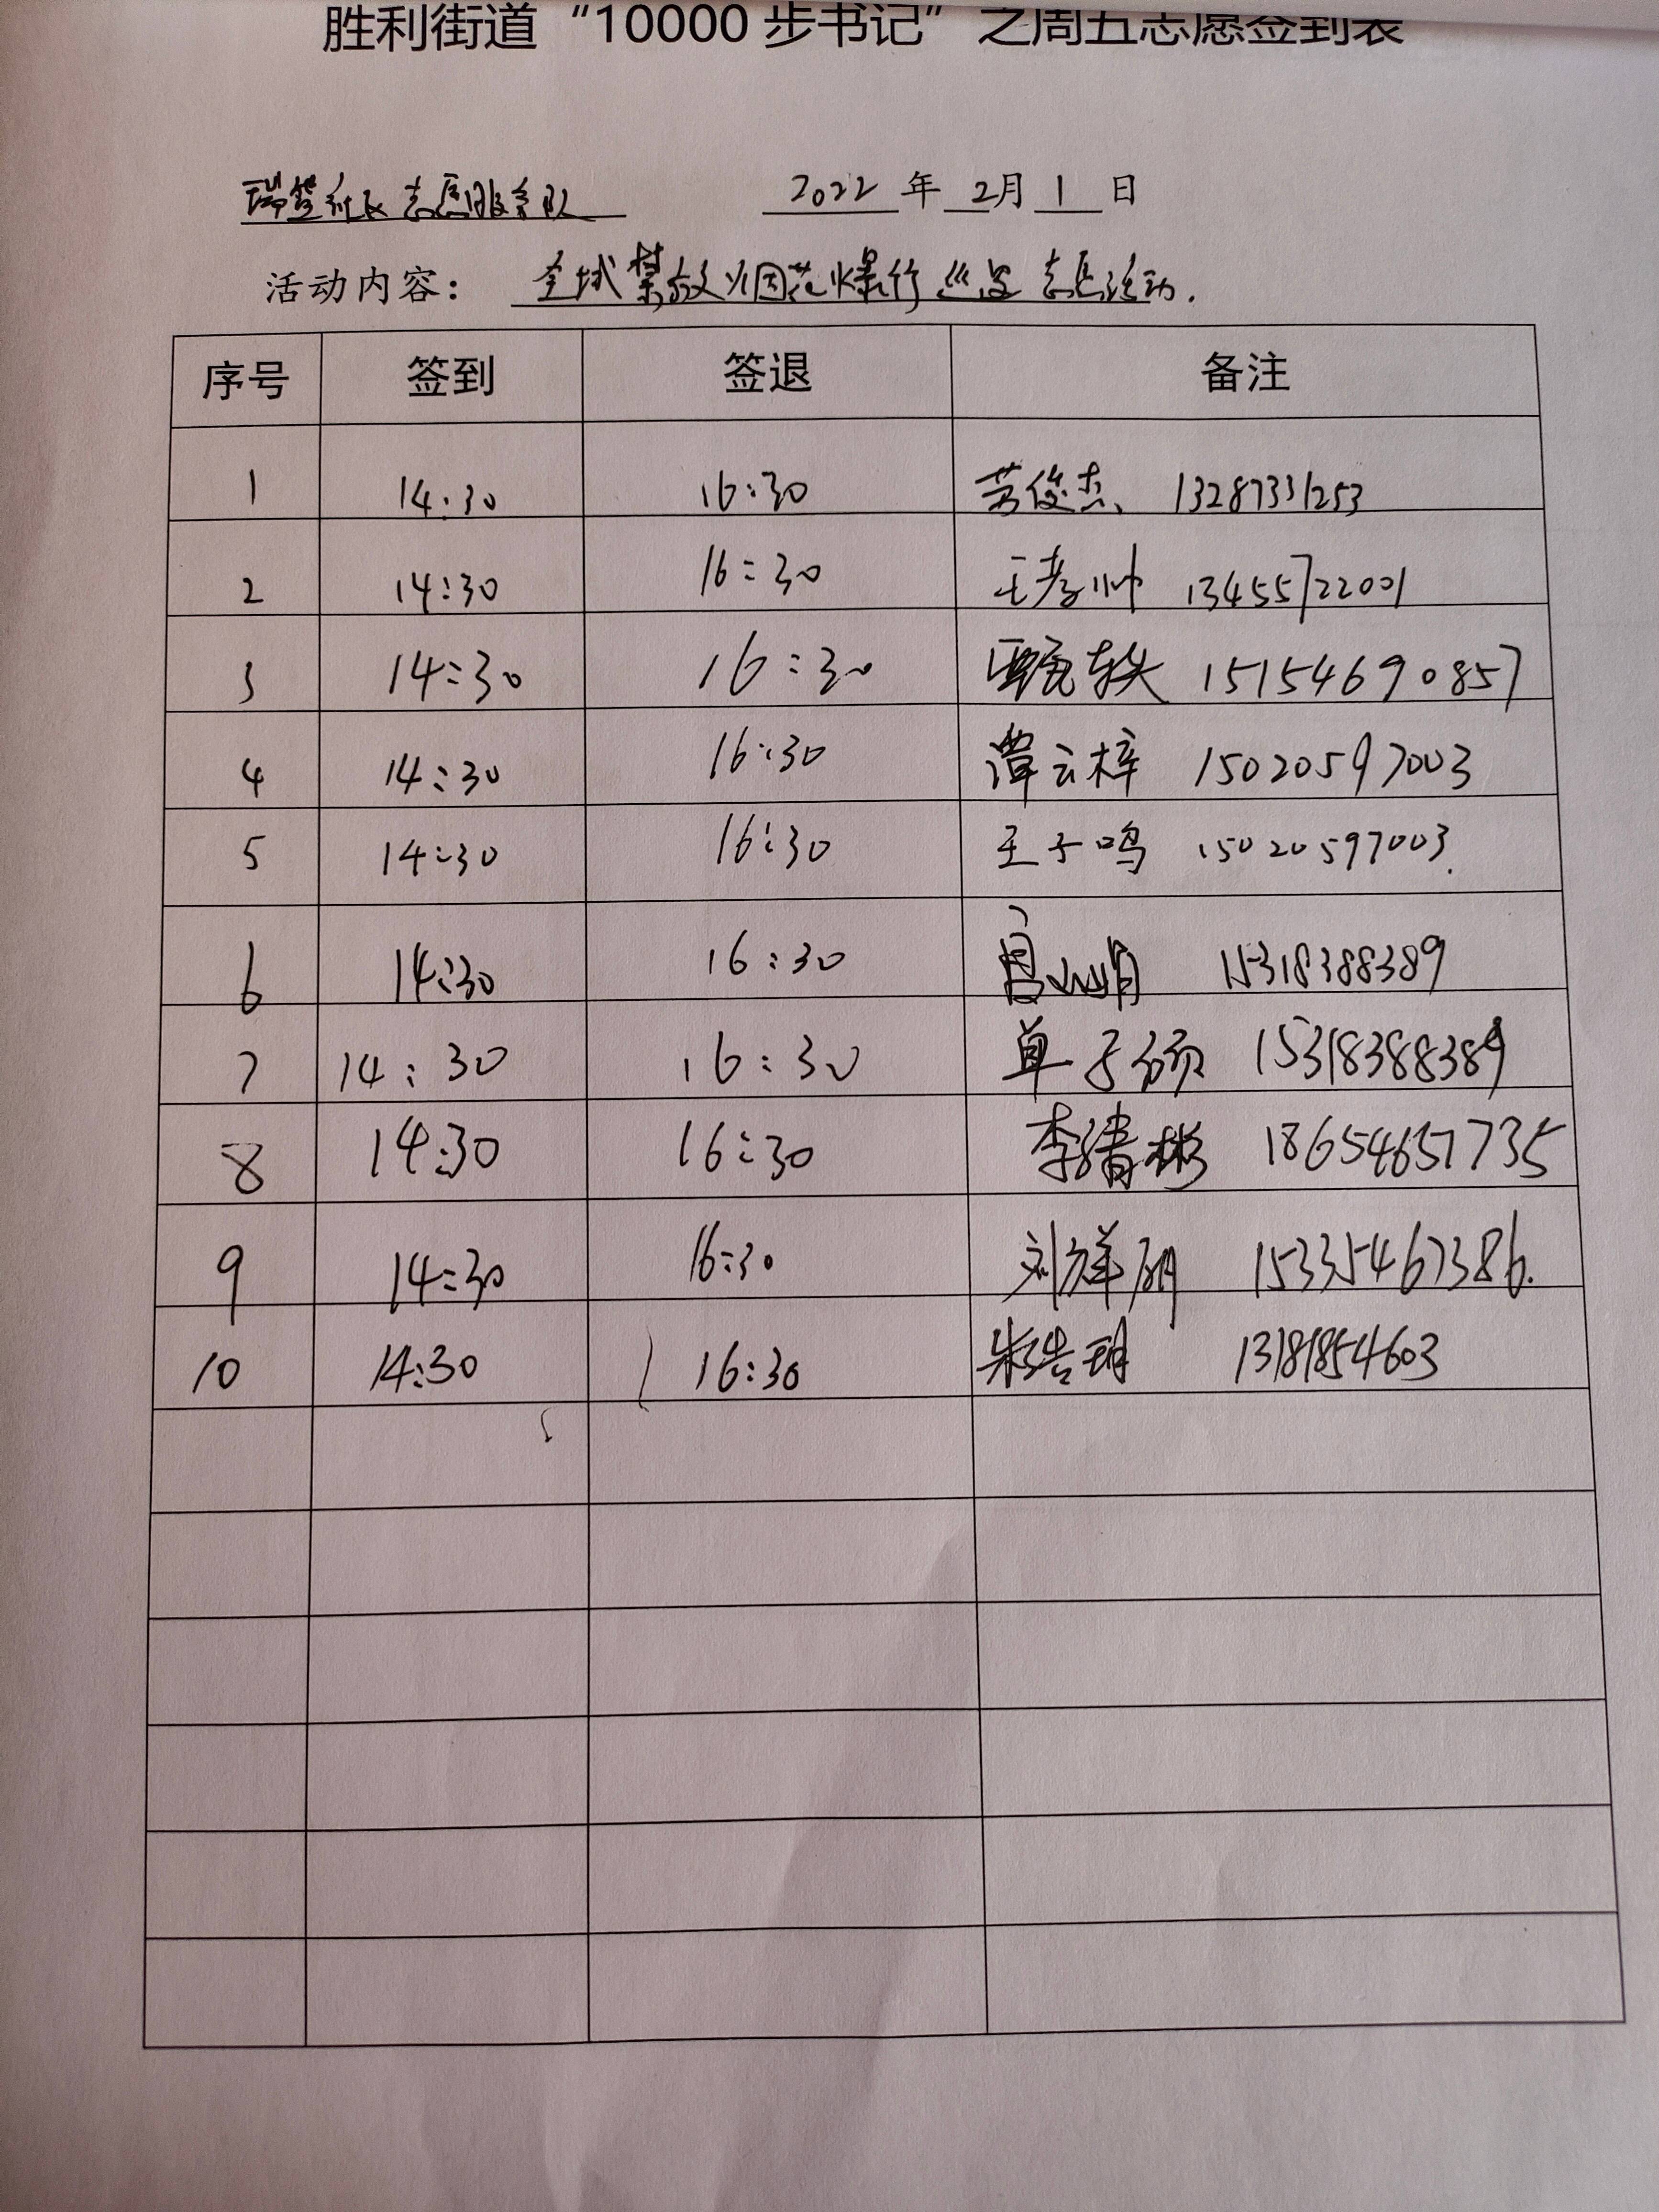 胜利街道“10000步书记”之周五志愿签到表
志愿服务队 2022年2月1日
活动内容：全域禁放烟花爆竹巡逻志愿活动.
序号 签到 签退 备注
1 14:30 16:30 苏俊杰 13287331253
2 14:30 16:30 王孝帅 13455722001
3 14:30 16:30 甄轶 15154690857
4 14:30 16:30 谭云梓 15020597003
5 14:30 16:30 王子鸣 15020597003.
6 14:30 16:30 15318388389
7 14:30 16:30 单子硕 15318388389
8 14:30 16:30 李绪彬 18654651735
9 14:30 16:30 刘祥丽 15335467386.
10 14:30 16:30 朱浩玥 13181854603